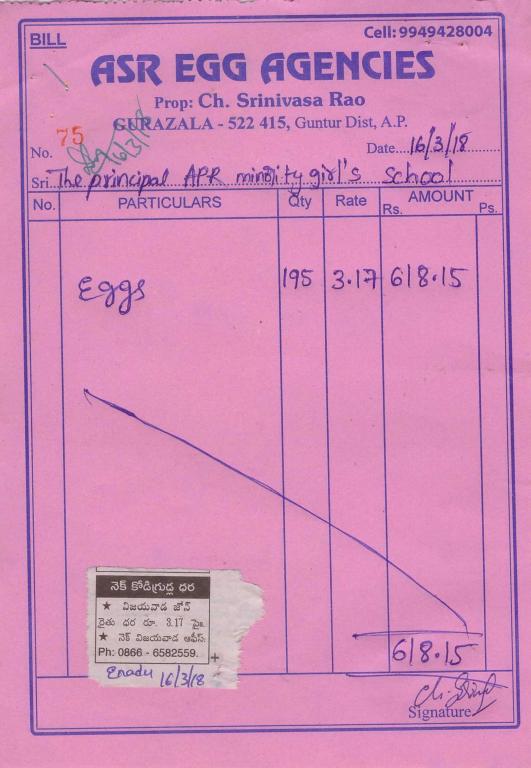 BILL
Cell: 9949428004
ASR EGG AGENCIES
Prop: Ch. Srinivasa Rao
GURAZALA - 522 415, Guntur Dist, A.P.
No. 75
16/3/18
Date 16/3/18
Sri. The principal APR minority girl's school
No. PARTICULARS Qty Rate AMOUNT
Rs. Ps.
Eggs 195 3.17 618.15
నెక్ కోడిగ్రుడ్ల ధర
★ విజయవాడ జోన్
రైతు ధర రూ. 3.17 పై.
★ నెక్ విజయవాడ ఆఫీస్:
Ph: 0866 - 6582559.
Enadu 16/3/18
618.15
Signature